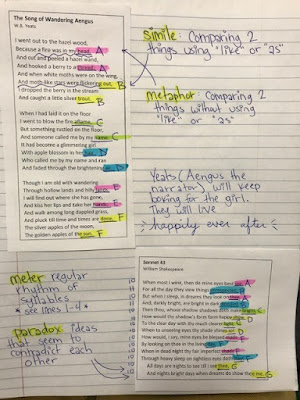 The Song of Wandering Aengus
W.B. Yeats
I went out to the hazel wood,
Because a fire was in my head, A
And cut and peeled a hazel wand,
And hooked a berry to a thread; A
And when white moths were on the wing,
And moth-like stars were flickering out, B
I dropped the berry in the stream
And caught a little silver trout. B
When I had laid it on the floor
I went to blow the fire aflame, C
But something rustled on the floor,
And someone called me by my name: C
It had become a glimmering girl
With apple blossom in her hair D
Who called me by my name and ran
And faded through the brightening air. D
Though I am old with wandering
Through hollow lands and hilly lands, E
I will find out where she has gone,
And kiss her lips and take her hands; E
And walk among long dappled grass,
And pluck till time and times are done, F
The silver apples of the moon,
The golden apples of the sun. F
simile: Comparing 2
things using "like" or "as"
metaphor: Comparing 2
things without using
"like" or "as"
Yeats (Aengus the
narrator) will keep
looking for the girl.
They will live
happily ever after
meter regular
rhythm of
syllables
see lines 1-4
paradox ideas
that seem to
contradict each
other
Sonnet 43
William Shakespeare
When most I wink, then do mine eyes best see, A
For all the day they view things unrespected; B
But when I sleep, in dreams they look on thee, A
And, darkly bright, are bright in dark directed. B
Then thou, whose shadow shadows doth make bright, C
How would thy shadow's form form happy show D
To the clear day with thy much clearer light, C
When to unseeing eyes thy shade shines so! D
How would, I say, mine eyes be blessed made E
By looking on thee in the living day, F
When in dead night thy fair imperfect shade E
Through heavy sleep on sightless eyes doth stay! F
All days are nights to see till I see thee, G
And nights bright days when dreams do show thee me. G